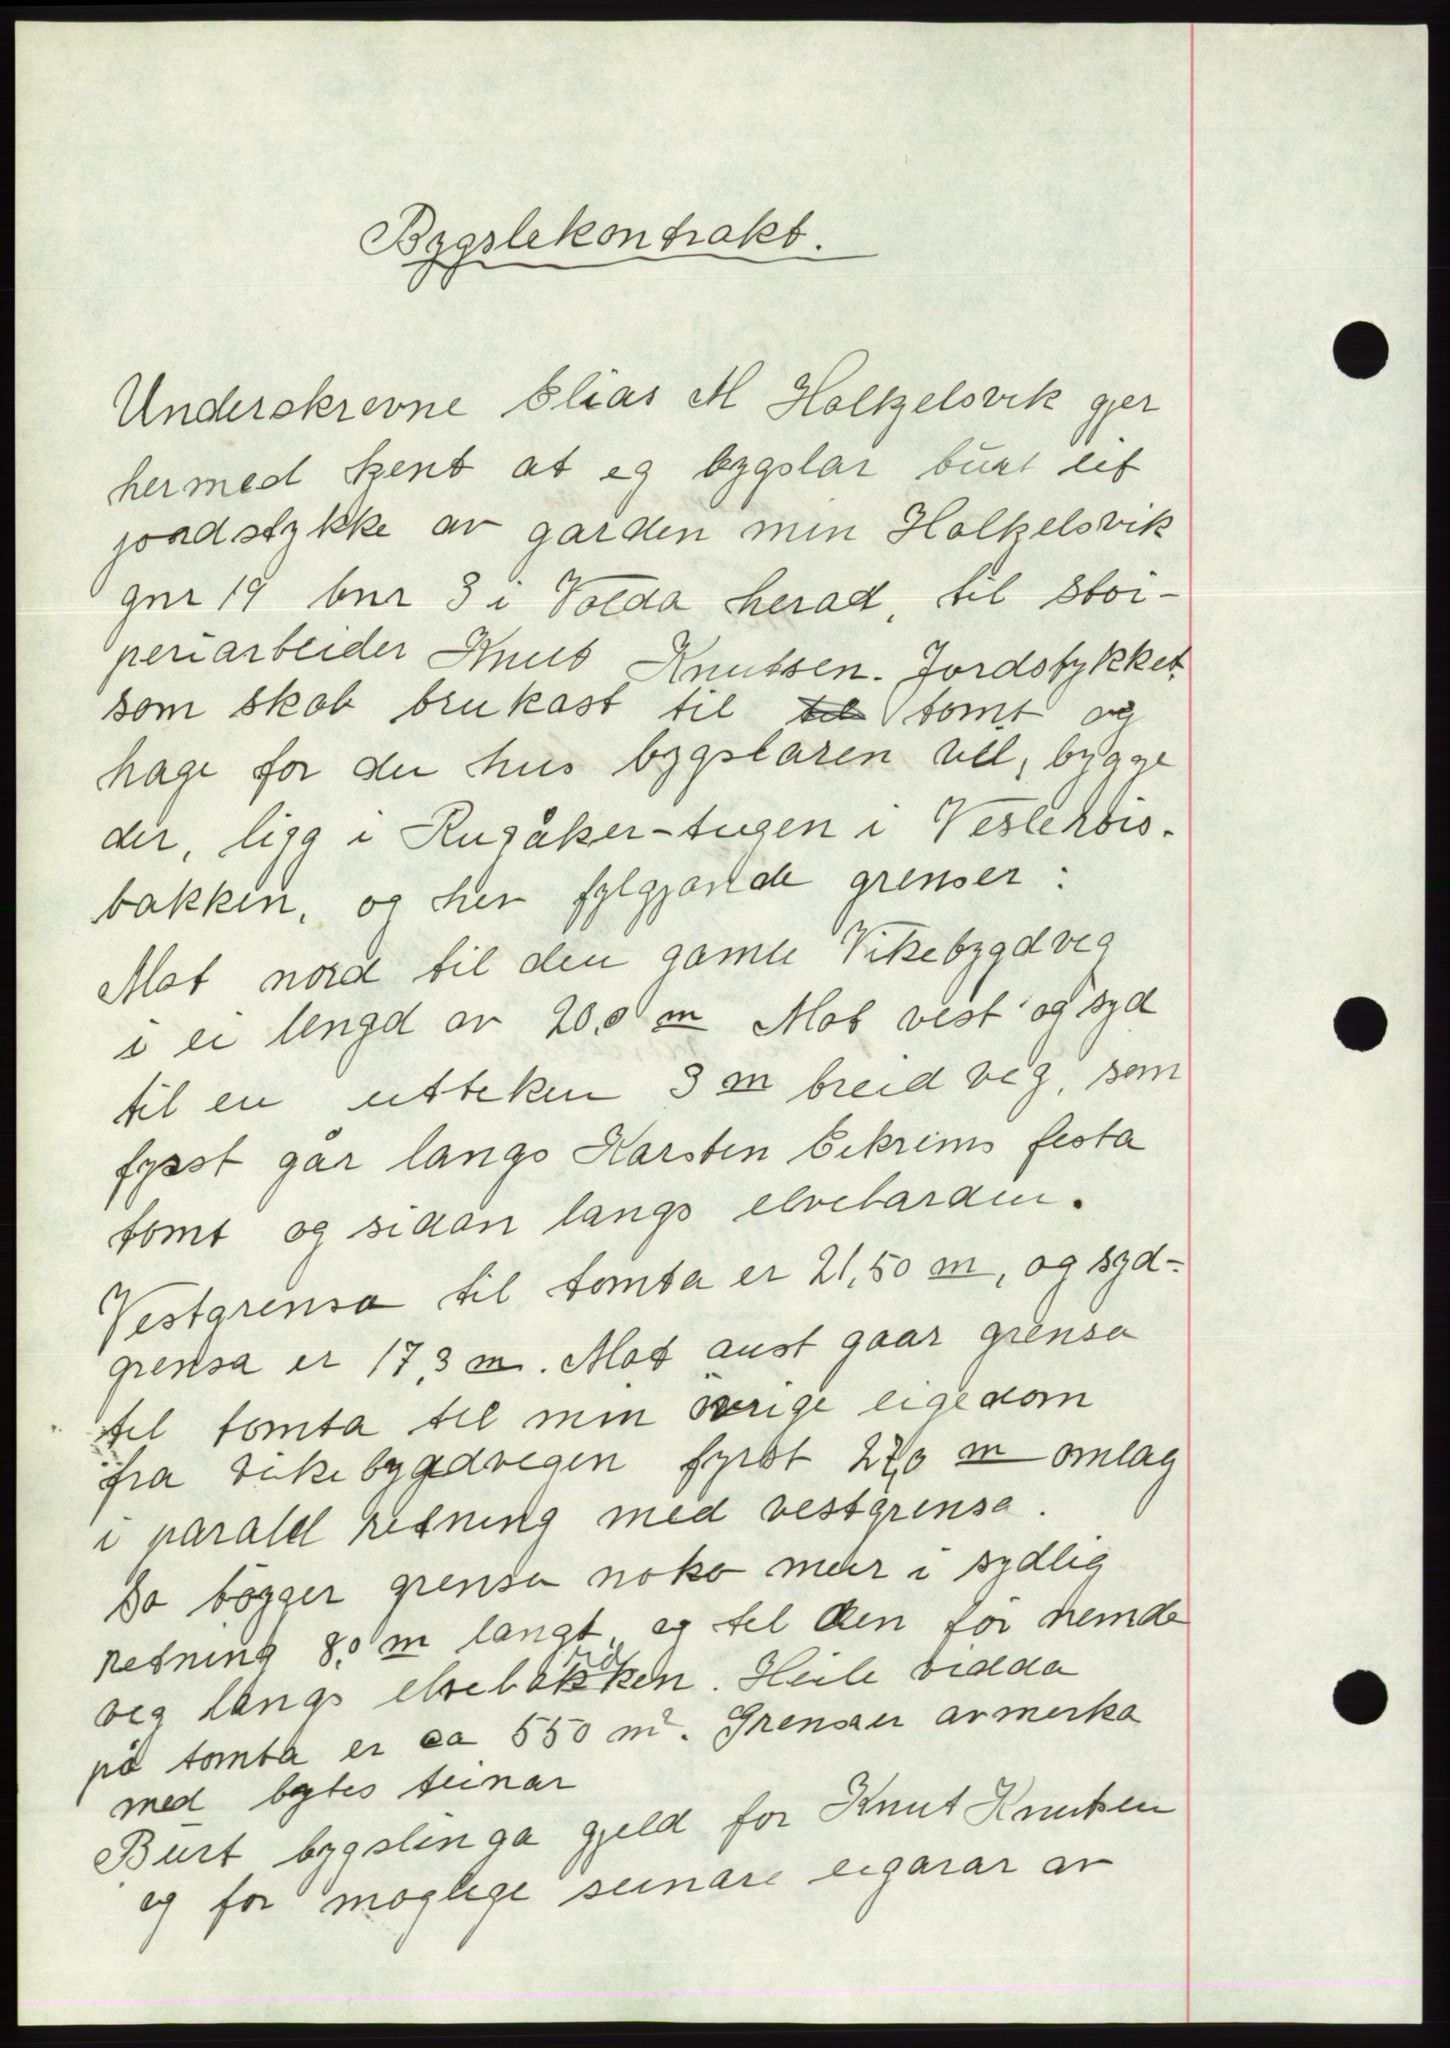 Bygslekontrakt.
Underskrevne Elias M Holkjelsvik gjer
hermed kjent at eg bygslar burt eit
jordstykke av garden min Holkjelsvik
gnr 19 bnr 3 i Volda herad, til støi-
periarbeider Knut Knutsen. Jordstykket,
som skab brukast til til tomt og
hage for dei hus bygslaren vil, bygge
der, ligg i Rugåker-tugen i
bakken, og her fylgjande grenser:
Mot nord til den gamle Vikebygdveg
i ei lengd av 20,0 m Mot vest og syd
til en utteken 3 m breid veg, som
fyrst går langs Karsten Eikrims festa
tomt og sidan langs elvebarden.
Vestgrensa til tomta er 21,50 m, og syd-
grensa er 17,3 m. Mot aust gaar grensa
til tomta til min övrige eigedom
fra vikebygdvegen fyrst 27,0 m omlag
i paralel retning med vestgrensa.
So bögger grensa noko meir i sydlig
retning 8,0 m langt, og til den för nemde
veg langs elvebakken. Heile vidda
på tomta er ca 550 m². Grensaer avmerka
med bytes teinar
Burt bygslinga gjeld for Knut Knutsen
og for moglege seinare eigarar av